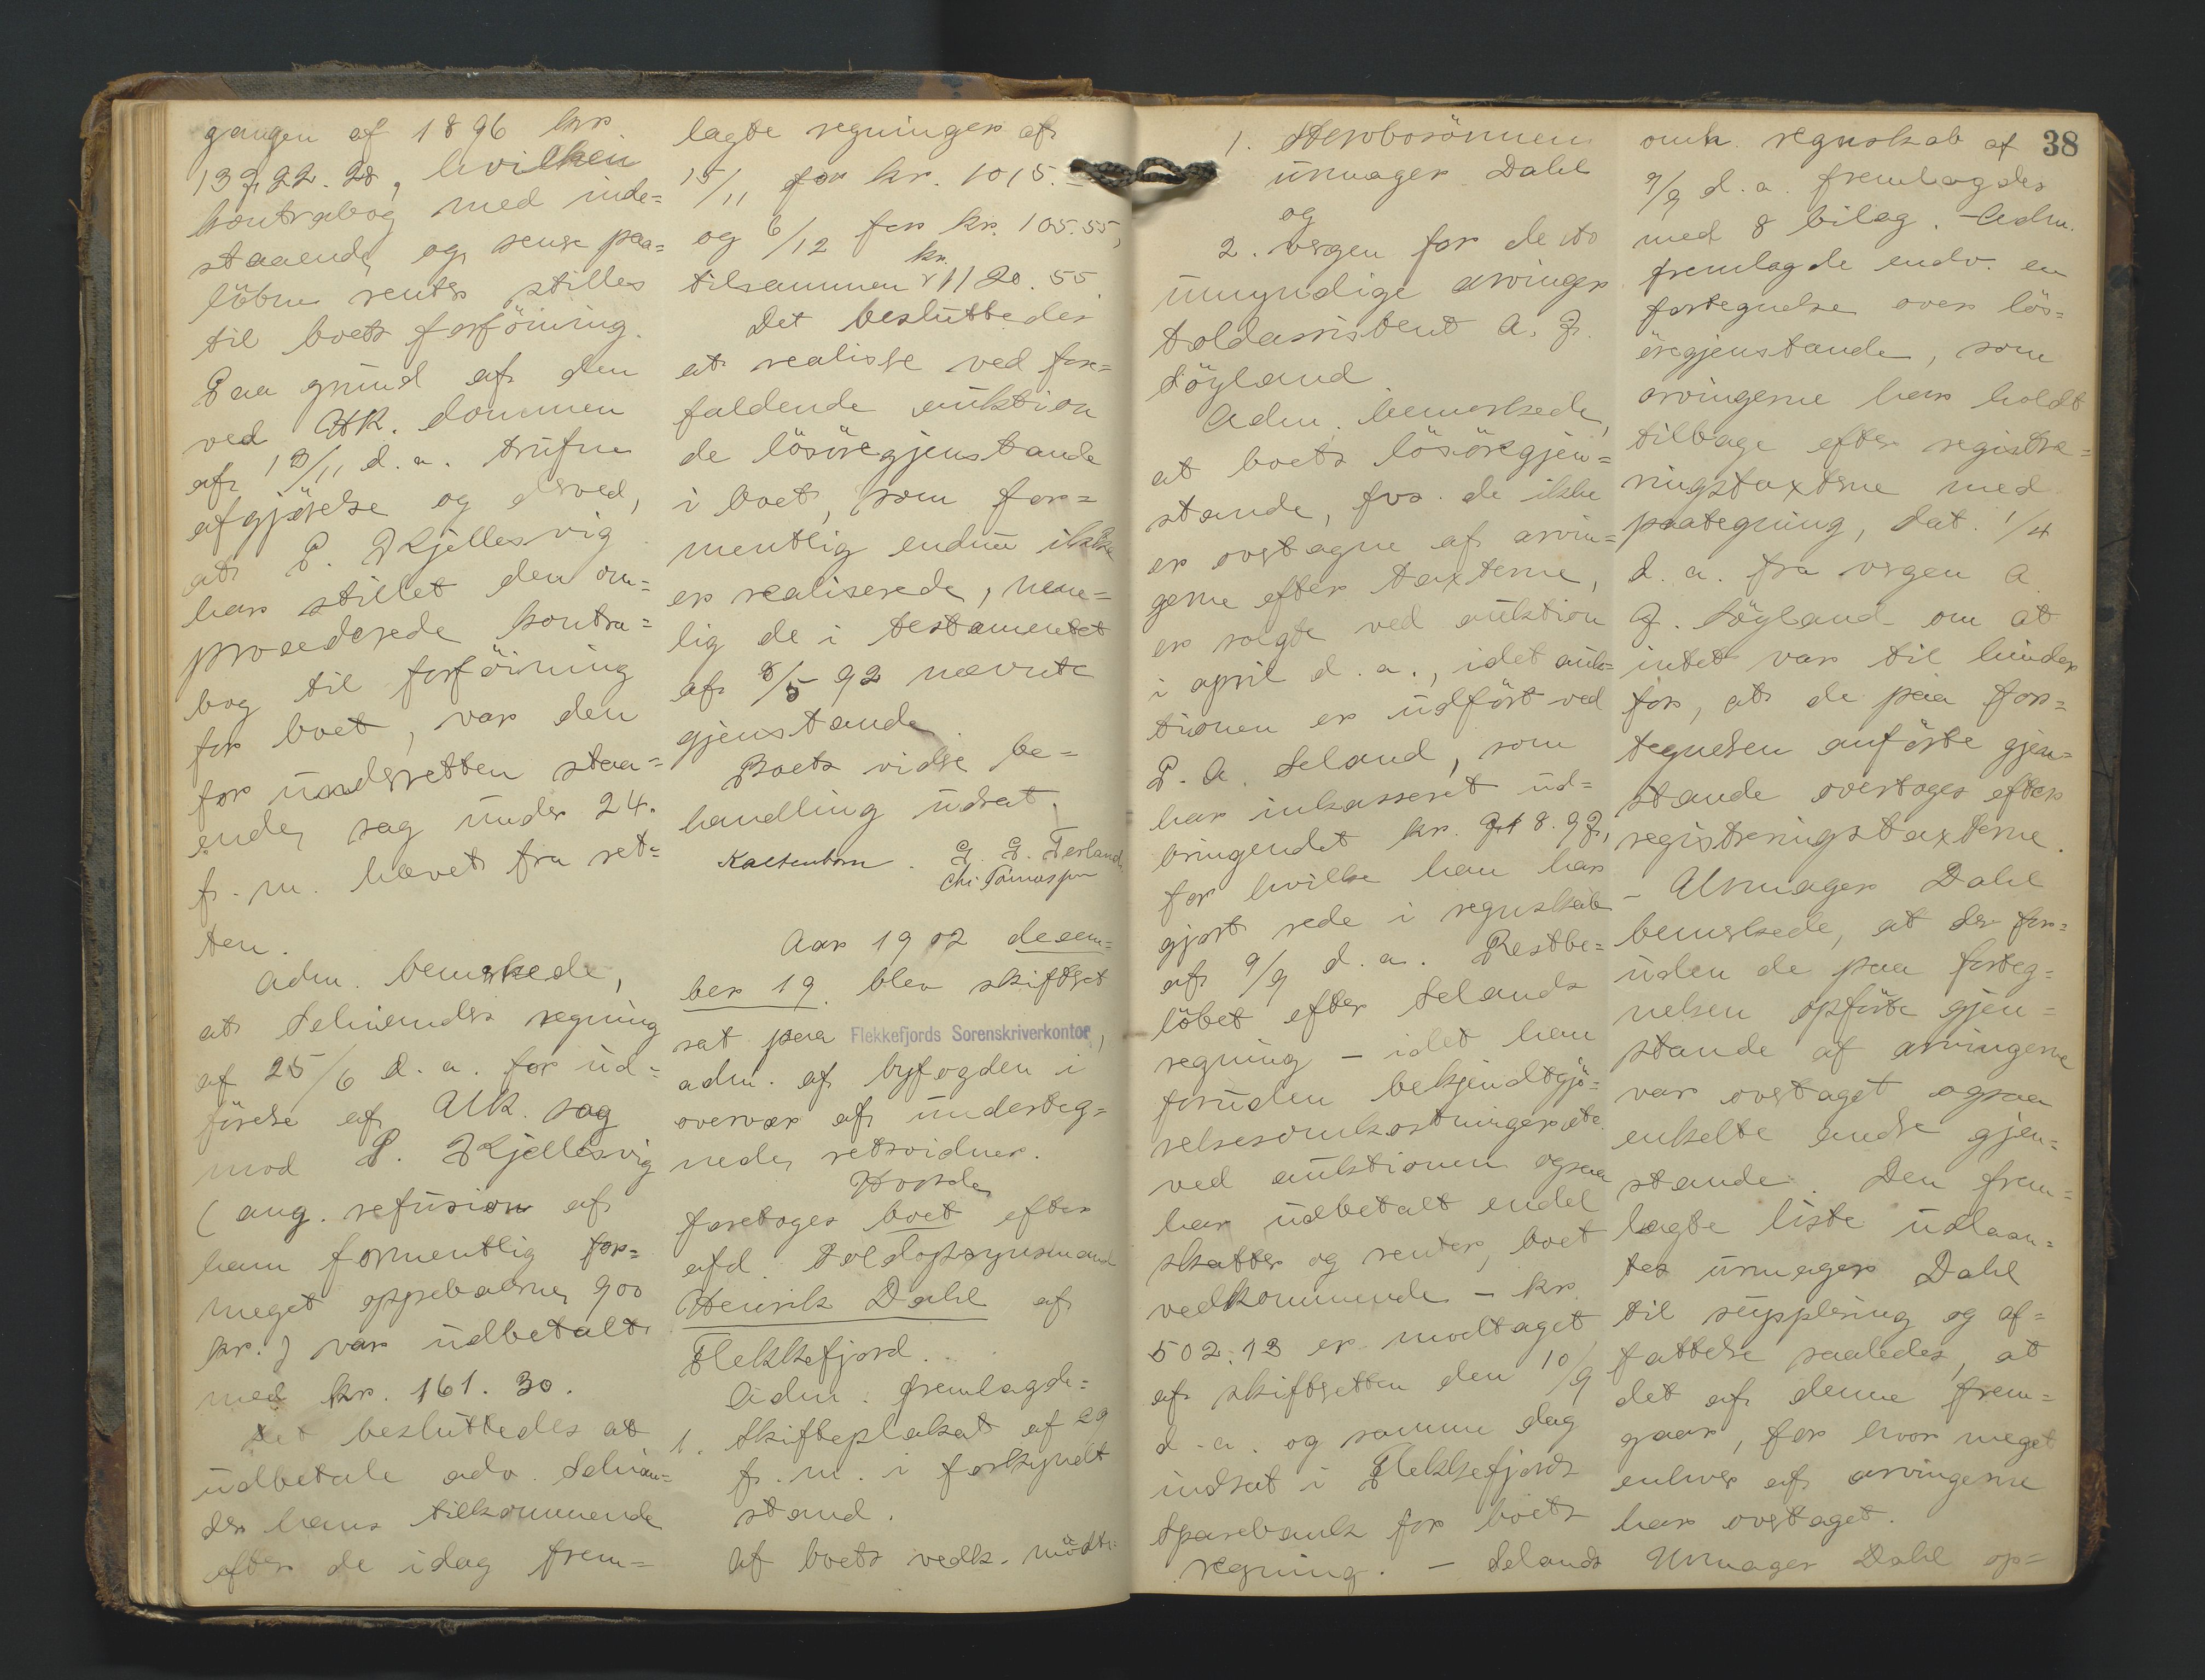 gangen af 1896 kr.
13722.28, hvilken
kontrabog med inde=
staaende og senere paa=
löbne renter stilles
til boets forföining.
Paa grund af den
ved HR. dommen
af 13/11 d. a. trufne
afgjörelse og derved,
at P. J Kjellesvig
har stillet den om=
procederede kontra=
bog til forföining
for boet, var den
for underretten staa=
ende sag under 24.
f. m. hævet fra ret=
ten.
Adm. bemerkede,
at regning
af 25/6 d. a. for ud=
förelse af UR. sag
mod P. J Kjellesvig
(ang. refusion af
ham formentlig for=
meget oppebaarne 900
kr.) var udbetalt
med kr. 161.30.
Det besluttedes at
udbetale adv.
hans tilkommende
efter de idag frem=
lagte regninger af
15/11 for kr. 1015.-
og 6/12 for kr. 105.55,
kr.
tilsammen 1120.55
Det besluttedes
at realisere ved fore=
faldende auktion
de lösöregjenstande
i boet, som for=
mentlig endnu ikke
er realiserede, nem=
lig de i testamentet
af 8/5 92 nævnte
gjenstande
Boets videre be=
handling udsat.
Kaltenborn. Terland
Chr. Tönnessen
Aar 1902 decem=
ber 19. blev skifteret
sat paa Flekkefjords Sorenskriverkontor,
adm. af byfogden i
overvær af underteg=
nede retsvidner.
Hvorda
foretoges boet efter
afd. toldopsynsmand
Henrik Dahl af
Flekkefjord.
Adm. fremlagde:
1. Skifteplakat af 29
f. m. i forkyndt
stand.
Af boets vedk. mödte:
1. Sterbosönnen
urmager Dahl
og
2. vergen for de to
umyndige arvinger
toldassistent A. J.
Söyland.
Adm. bemerkede,
at boets lösöregjen=
stande, fvs. de ikke
er overtagne af arvin=
gerne efter taxterne,
er solgte ved auktion
i april d. a., idet auk=
tionen er udfört ved
P. A. Seland, som
har inkasseret ud=
bringendet kr. 718.97,
for hvilke han har
gjort rede i regnskab
af 9/9 d. a. Restbe=
löbet efter Selands
regning - idet han
foruden bekjendtgjö=
relsesomkostninger etc.
ved auktionen ogsaa
har udbetalt endel
skatter og renter, boet
vedkommende - kr.
502.13 er modtaget
af skifteretten den 10/9
d. a. og samme dag
indsat i Flekkefjords
Sparebank for boets
regning. - Selands
38
omh. regnskab af
9/9 d. a. fremlagdes
med 8 bilag. - Adm.
fremlagde endv. en
fortegnelse over lös=
öregjenstande, som
arvingerne har holdt
tilbage efter registre=
ringstaxterne med
paategning, dat. 1/4
d. a. fra vergen A.
J. Söyland om at
intet var til hinder
for, at de paa for=
tegnelsen anförte gjen=
stande overtoges efter
registreringstaxterne.
- Urmager Dahl
bemerkede, at der for=
uden de paa forteg=
nelsen opförte gjen=
stande af arvingerne
var overtaget ogsaa
enkelte andre gjen=
stande. Den frem=
lagte liste udlaan=
tes urmager Dahl
til supplering og af=
fattelse saaledes, at
det af denne frem=
gaar, for hvor meget
enhver af arvingerne
har overtaget.
Urmager Dahl op=